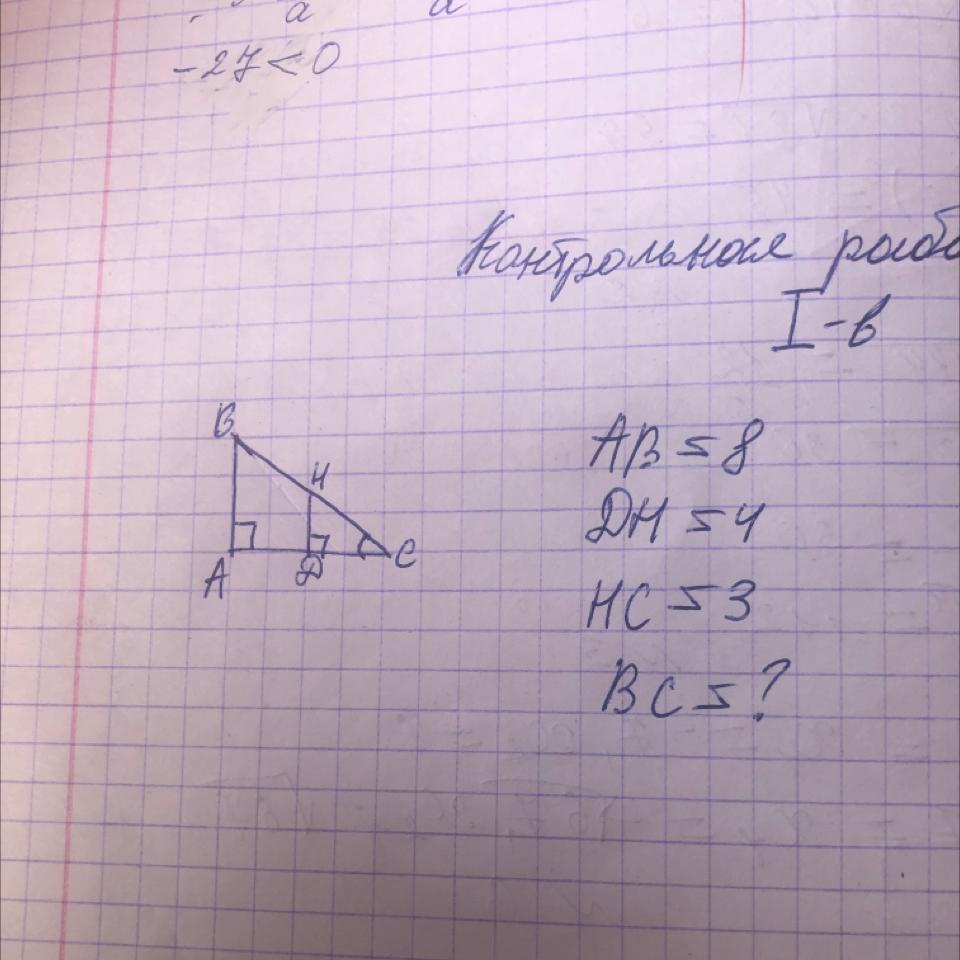 a a
-27<0
Контрольная рабо
I-в
B
H
A
D
C
AB=8
DH=4
HC=3
BC=?